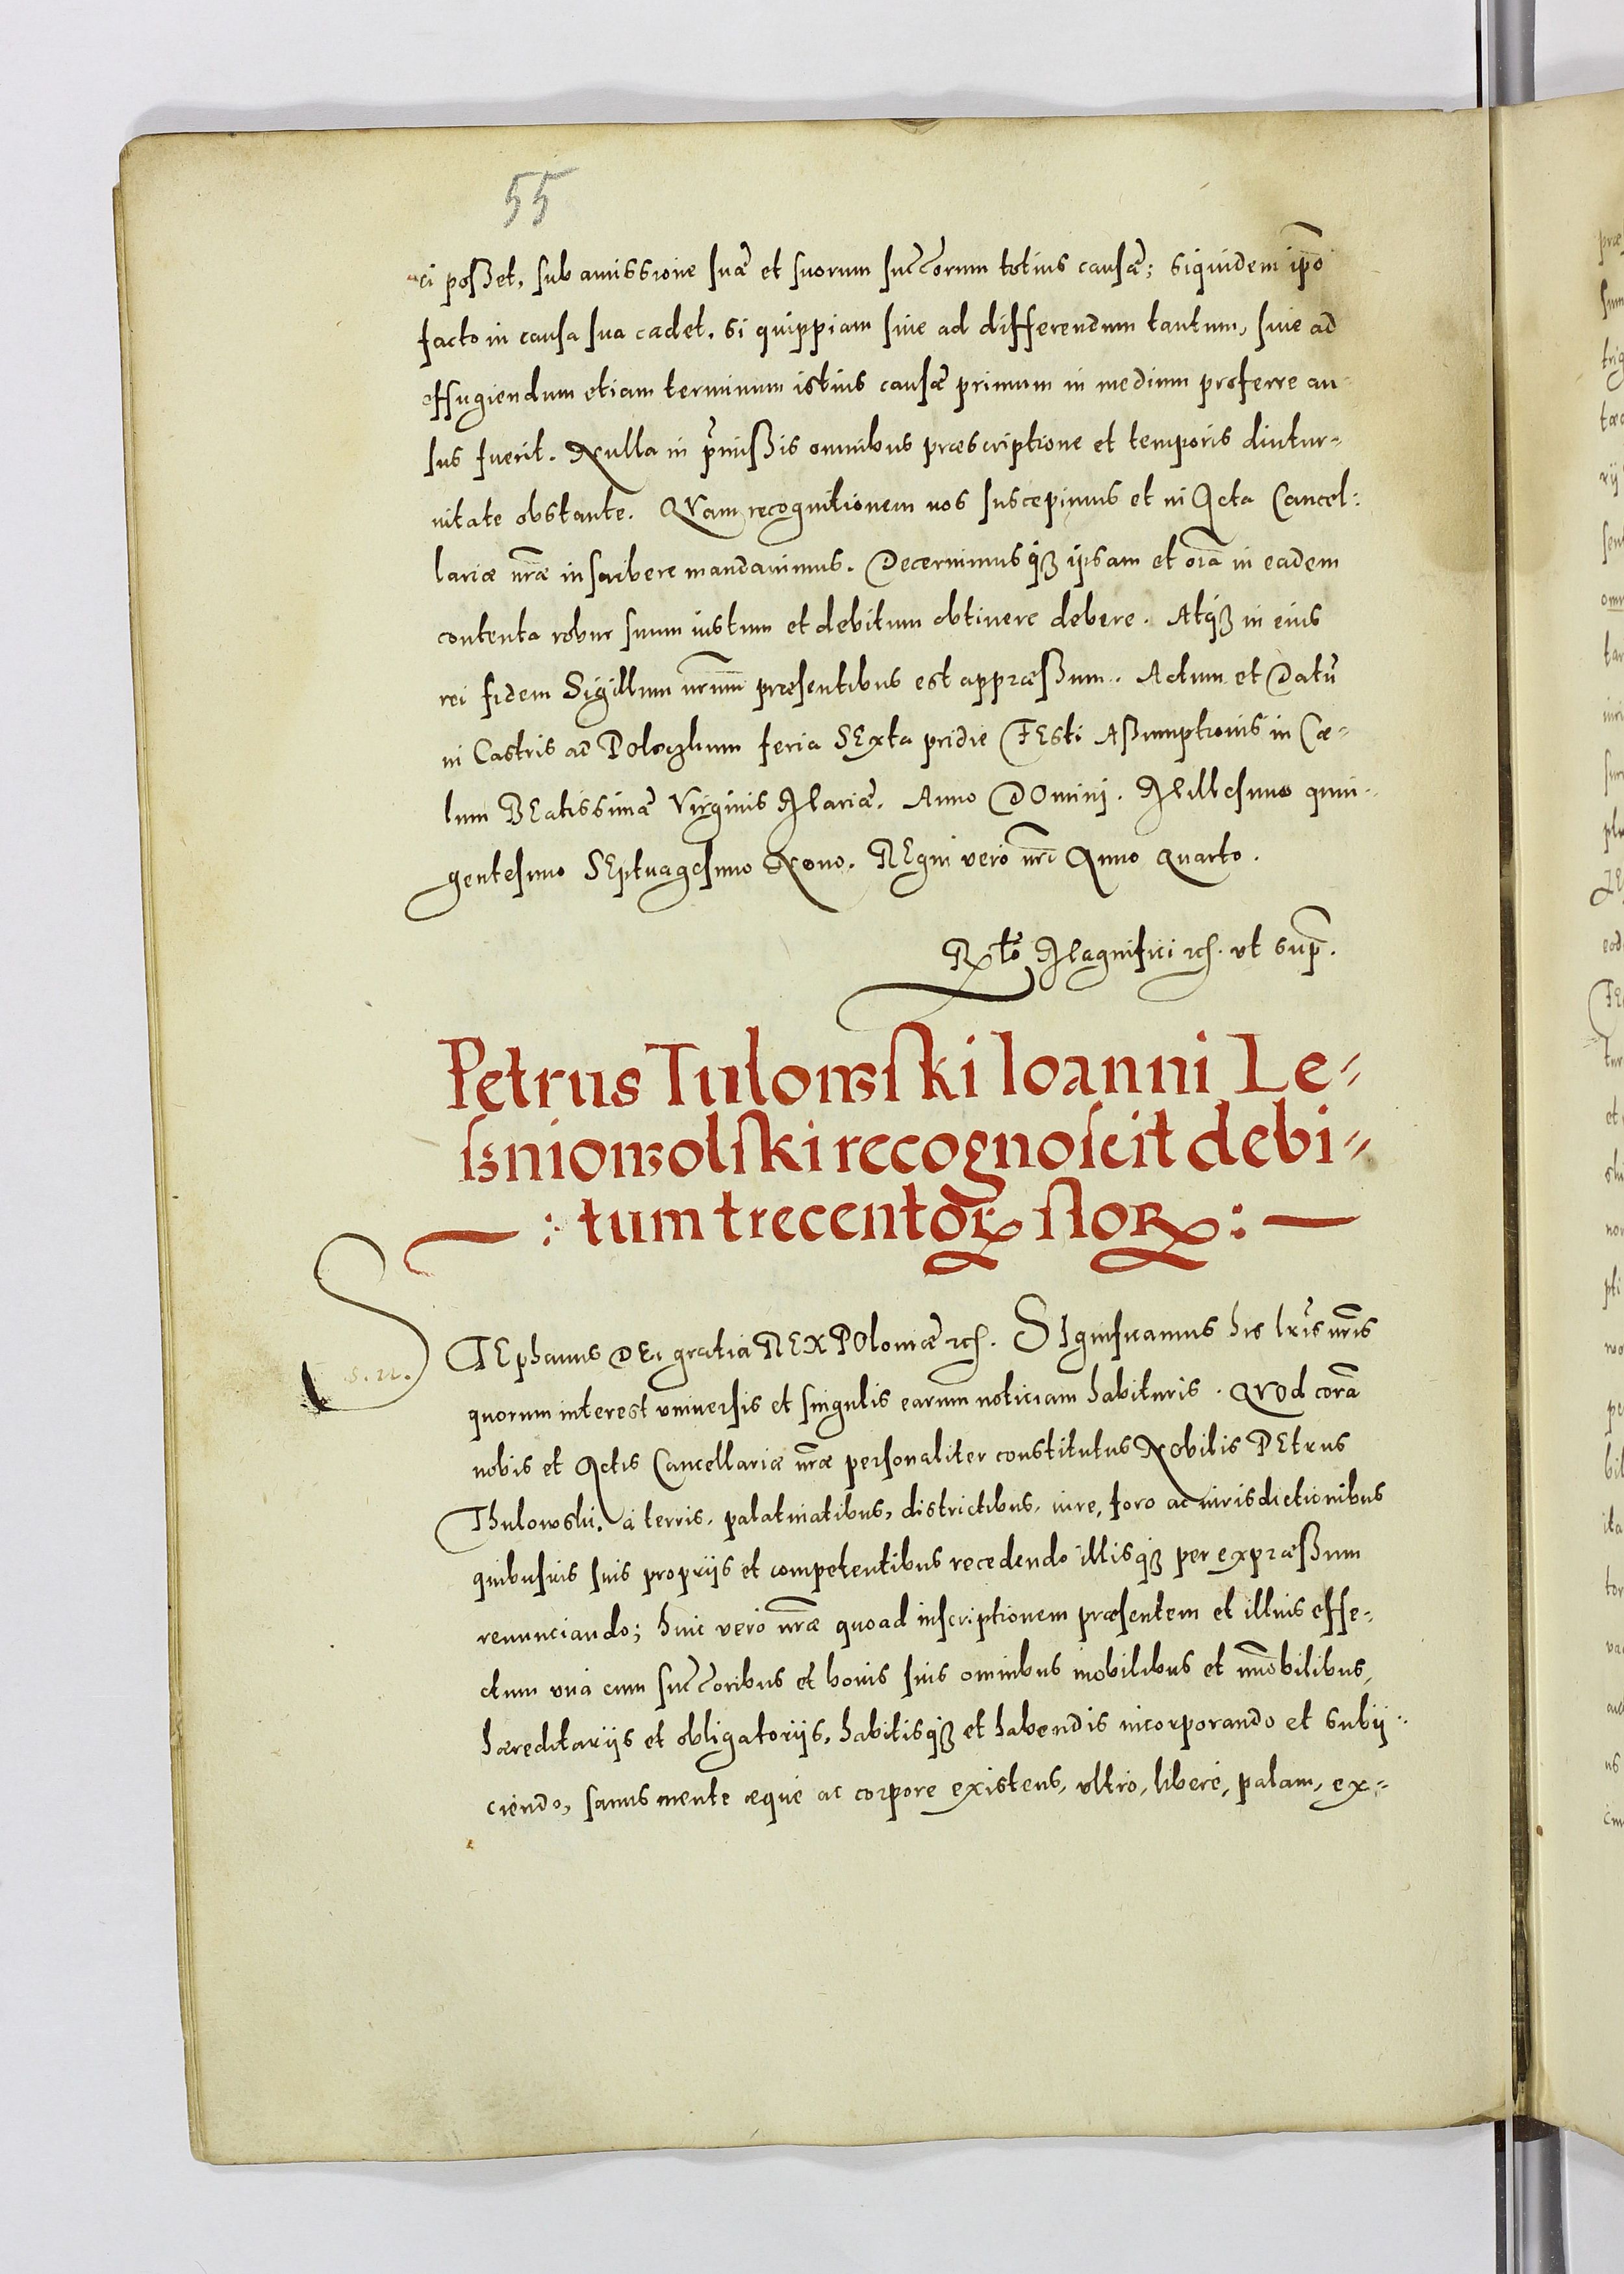 55
ci poßet, sub amissione suæ et suorum succorum totius causæ; siquidem ipo
facto in causa sua cadet. Si quippiam siue ad differendum tantum, siue ad
effugiendum etiam terminum istius causæ primum in medium proferre au-
sus fuerit. Nulla in pmißis omnibus præscriptione et temporis diutur-
nitate obstante. QVam recognitionem nos suscepimus et in Acta Cancel:
lariæ nræ inscribere mandauimus. Decernimusqȝ ipsam et oĩa in eadem
contenta robur suum iustum et debitum obtinere debere. Atqȝ in eius
rei fidem Sigillum nrum præsentibus est appræßum. Actum et Datũ
in Castris ad Poloczhum feria SExta pridie FEsti Aßumptionis in Cæ-
lum BEatissimæ Virginis Mariæ. Anno DOmini. Millesimo quin-
gentesimo SEptuagesimo Nono. REgni vero nri Anno Quarto.
Rto Magnifici etc. vt supr.
Petrus Tulowski Ioanni Le-
sniowolski recognoscit debi-
: tum trecentor flor :
S
s. n.
TEphanus DEi gratia REX POloniæ etc. SIgnificamus his lris nris
quorum interest vniuersis et singulis earum noticiam habituris. QVod corã
nobis et Actis Cancellariæ nræ personaliter constitutus Nobilis PEtrus
Thulowski, à terris, palatinatibus, districtibus, iure, foro ac iurisdictionibus
quibusuis suis proprijs et competentibus recedendo illisqȝ per expræßum
renunciando; huic vero nræ quoad inscriptionem præsentem et illius effe-
ctum vnà cum succoribus et bonis suis omnibus mobilibus et immobilibus,
hæreditarijs et obligatorijs, habitisqȝ et habendis incorporando et subij-
ciendo, sanus mente æquè ac corpore existens, vltro, liberè, palam, ex-